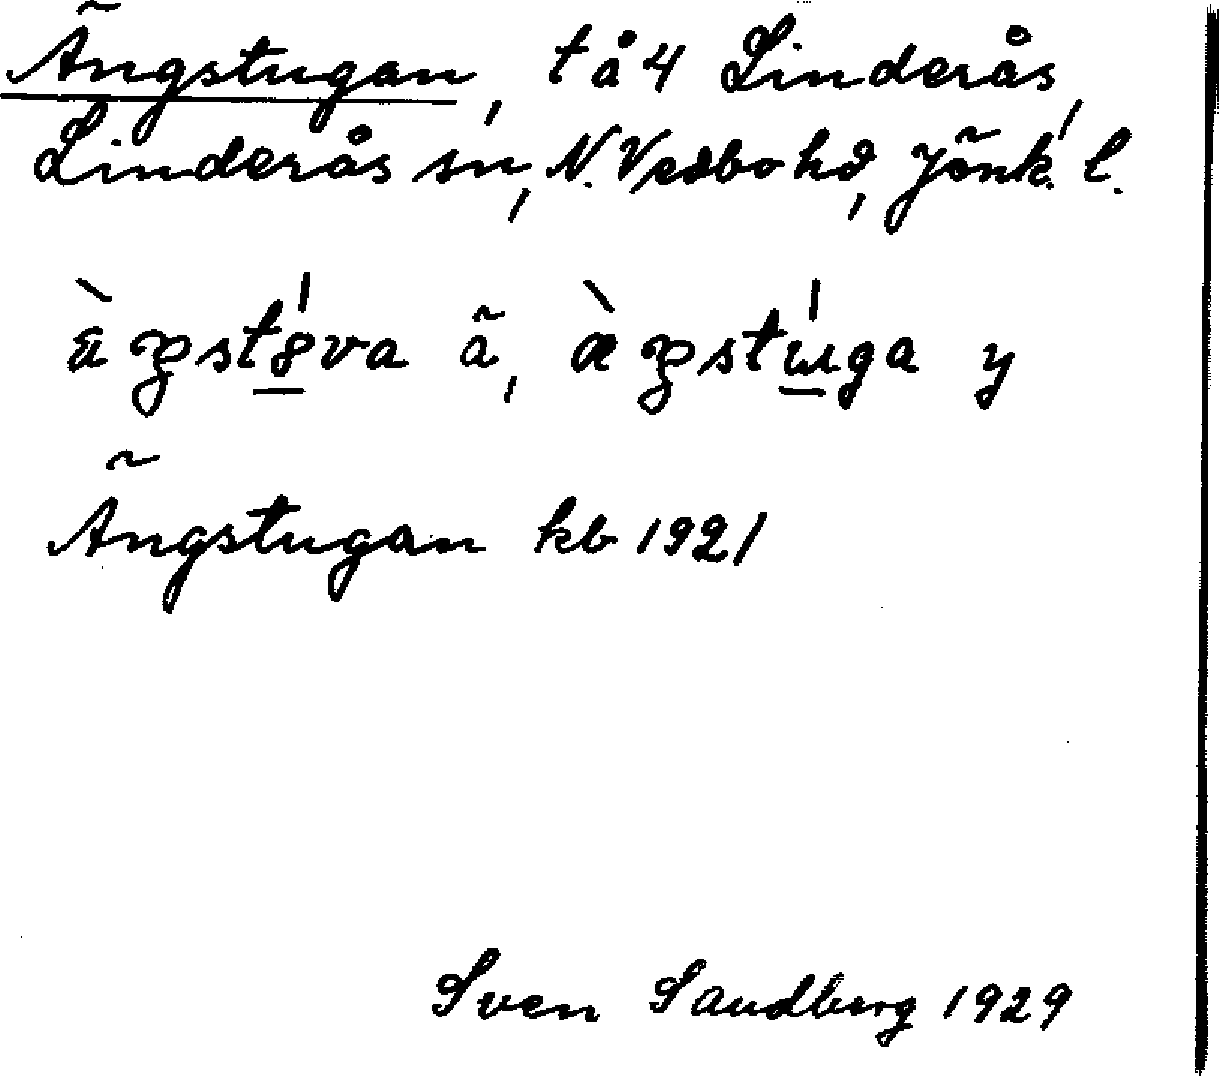 Ängstugan, t å 4 Linderås,
Linderås sn, N. Vedbo hd, Jönk. l.
ä̀ŋstȣ́va ä, æ̀ŋstɯ́ga y
Ängstugan kb 1921
Sven Sandberg 1929